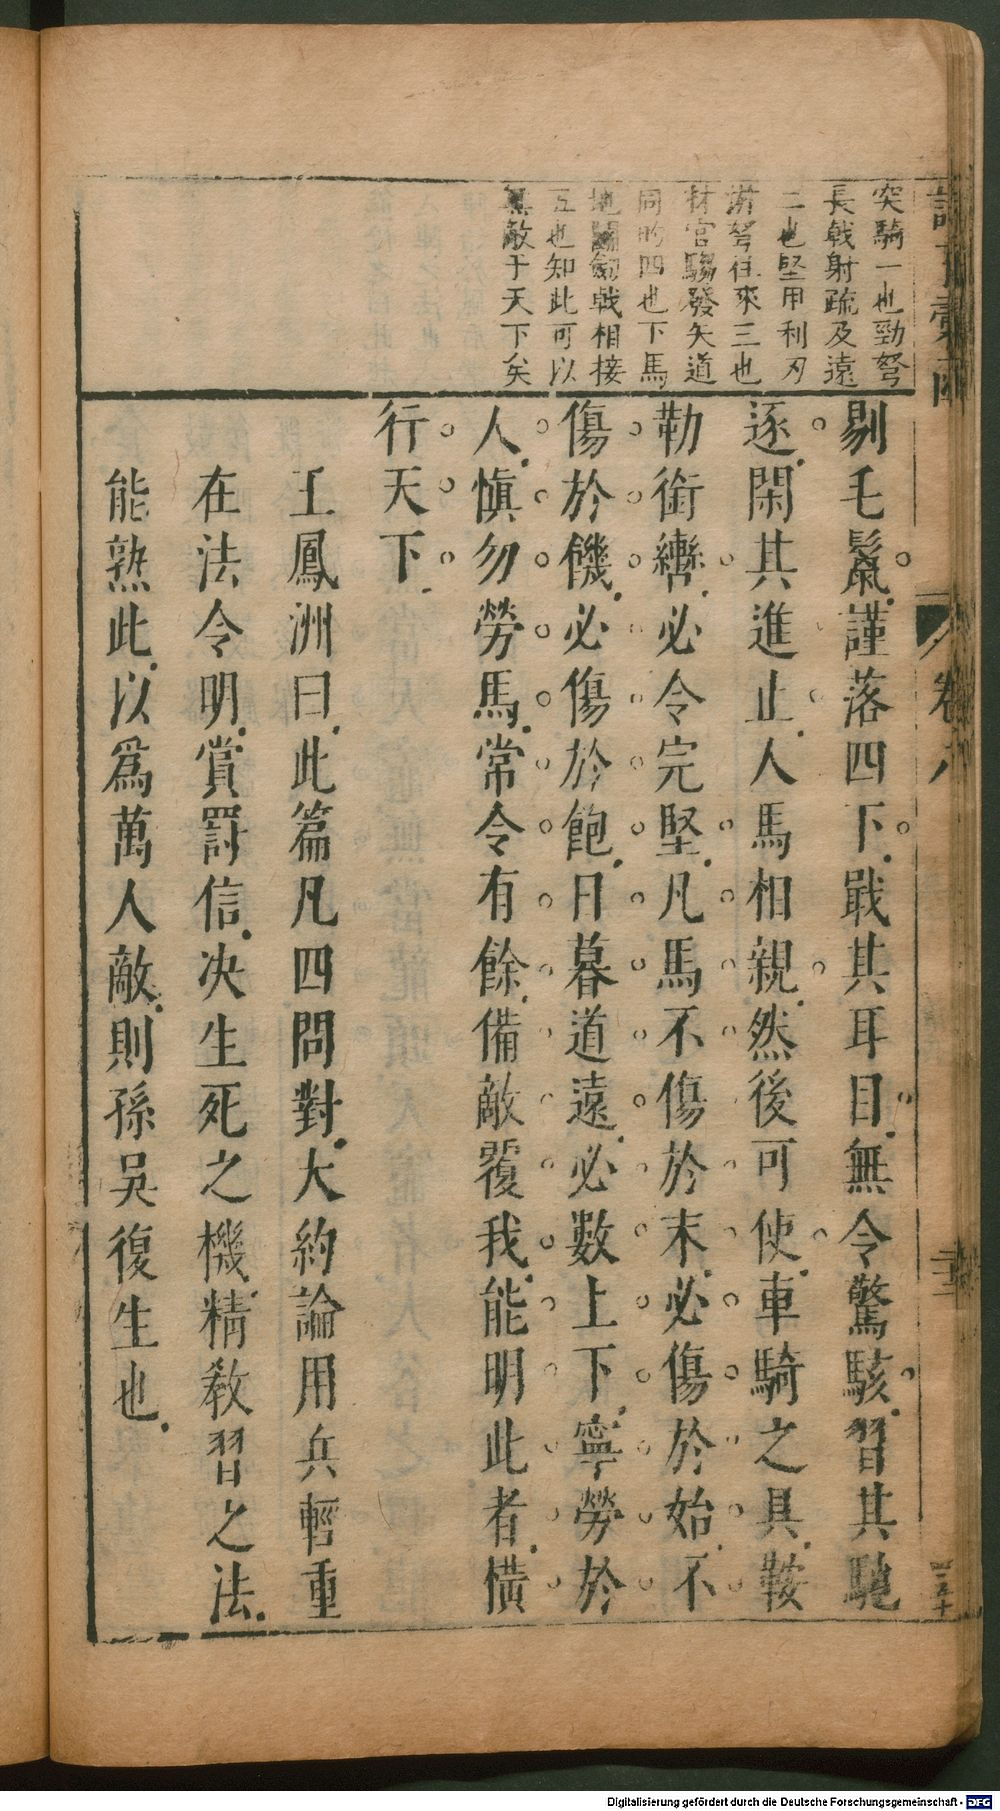 突騎一也勁弩
長戟射疏及遠
二也堅甲利刃
游弩往來三也
材官騶發矢道
同的四也下馬
地鬭劒戟相接
五也知此可以
無敵于天下矣
剔毛鬣謹落四下戢其耳目無令驚駭習其馳
逐閑其進止人馬相親然後可使車騎之具鞍
勒銜轡必令完堅凡馬不傷於末必傷於始不
傷於饑必傷於飽日暮道遠必數上下寧勞於
人慎勿勞馬常令有餘備敵覆我能明此者橫
行天下
王鳳洲曰此篇凡四問對大約論用兵輕重
在法令明賞罰信决生死之機精教習之法
能熟此以爲萬人敵則孫吳復生也
卷八
Digitalisierung gefördert durch die Deutsche Forschungsgemeinschaft - DFG